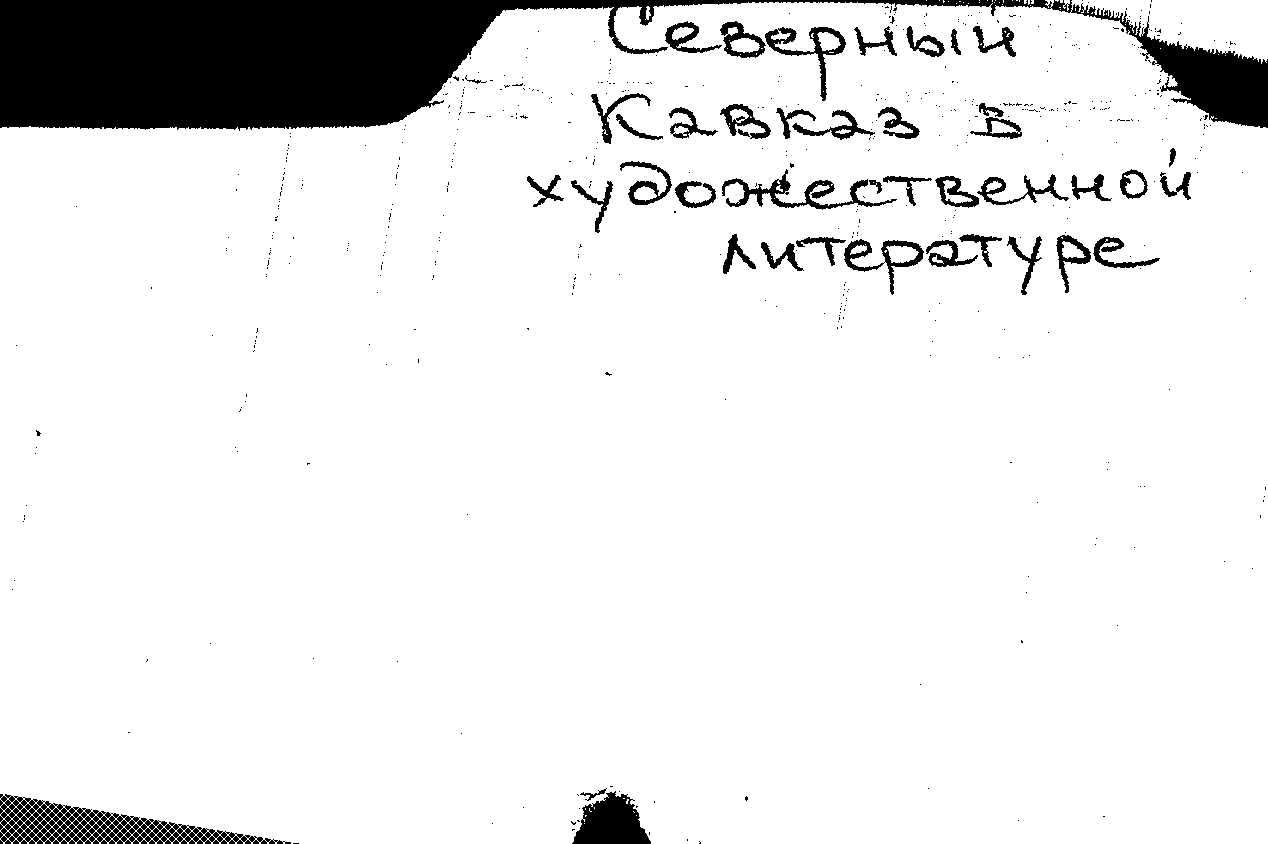 Северный
Кавказ в
художественной
литературе